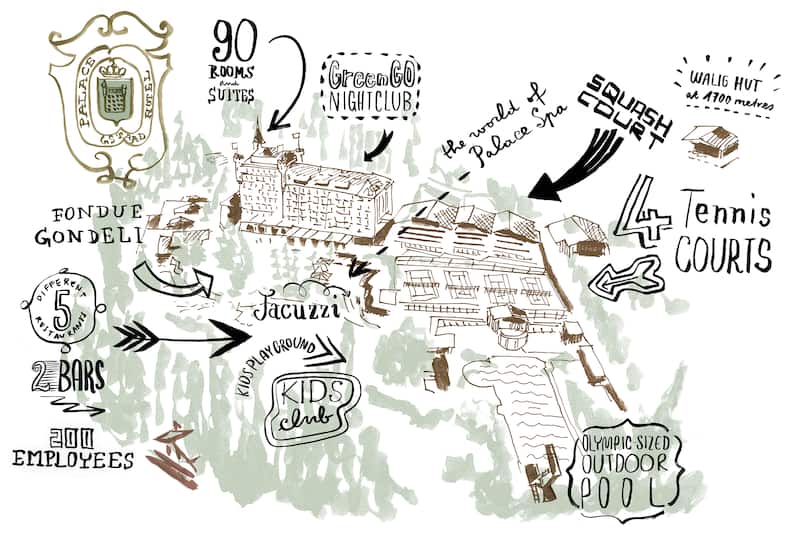 PALACE
HOTEL
GSTAAD
90
ROOMS
and
SUITES
GreenGO
NIGHTCLUB
the world of
Palace Spa
SQUASH
COURT
WALIG HUT
at 1700 metres
FONDUE
GONDELI
4 Tennis
COURTS
DIFFERENT
5
RESTAURANTS
2 BARS
200
EMPLOYEES
Jacuzzi
KIDS PLAYGROUND
KIDS
club
OLYMPIC-SIZED
OUTDOOR
POOL